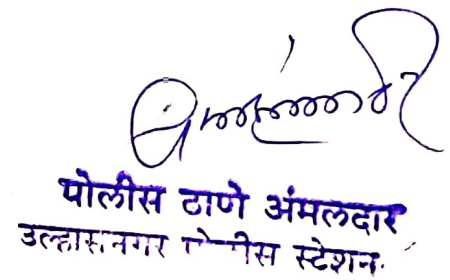 पोलीस ठाणे अंमलदार
उल्हासनगर पोलीस स्टेशन.